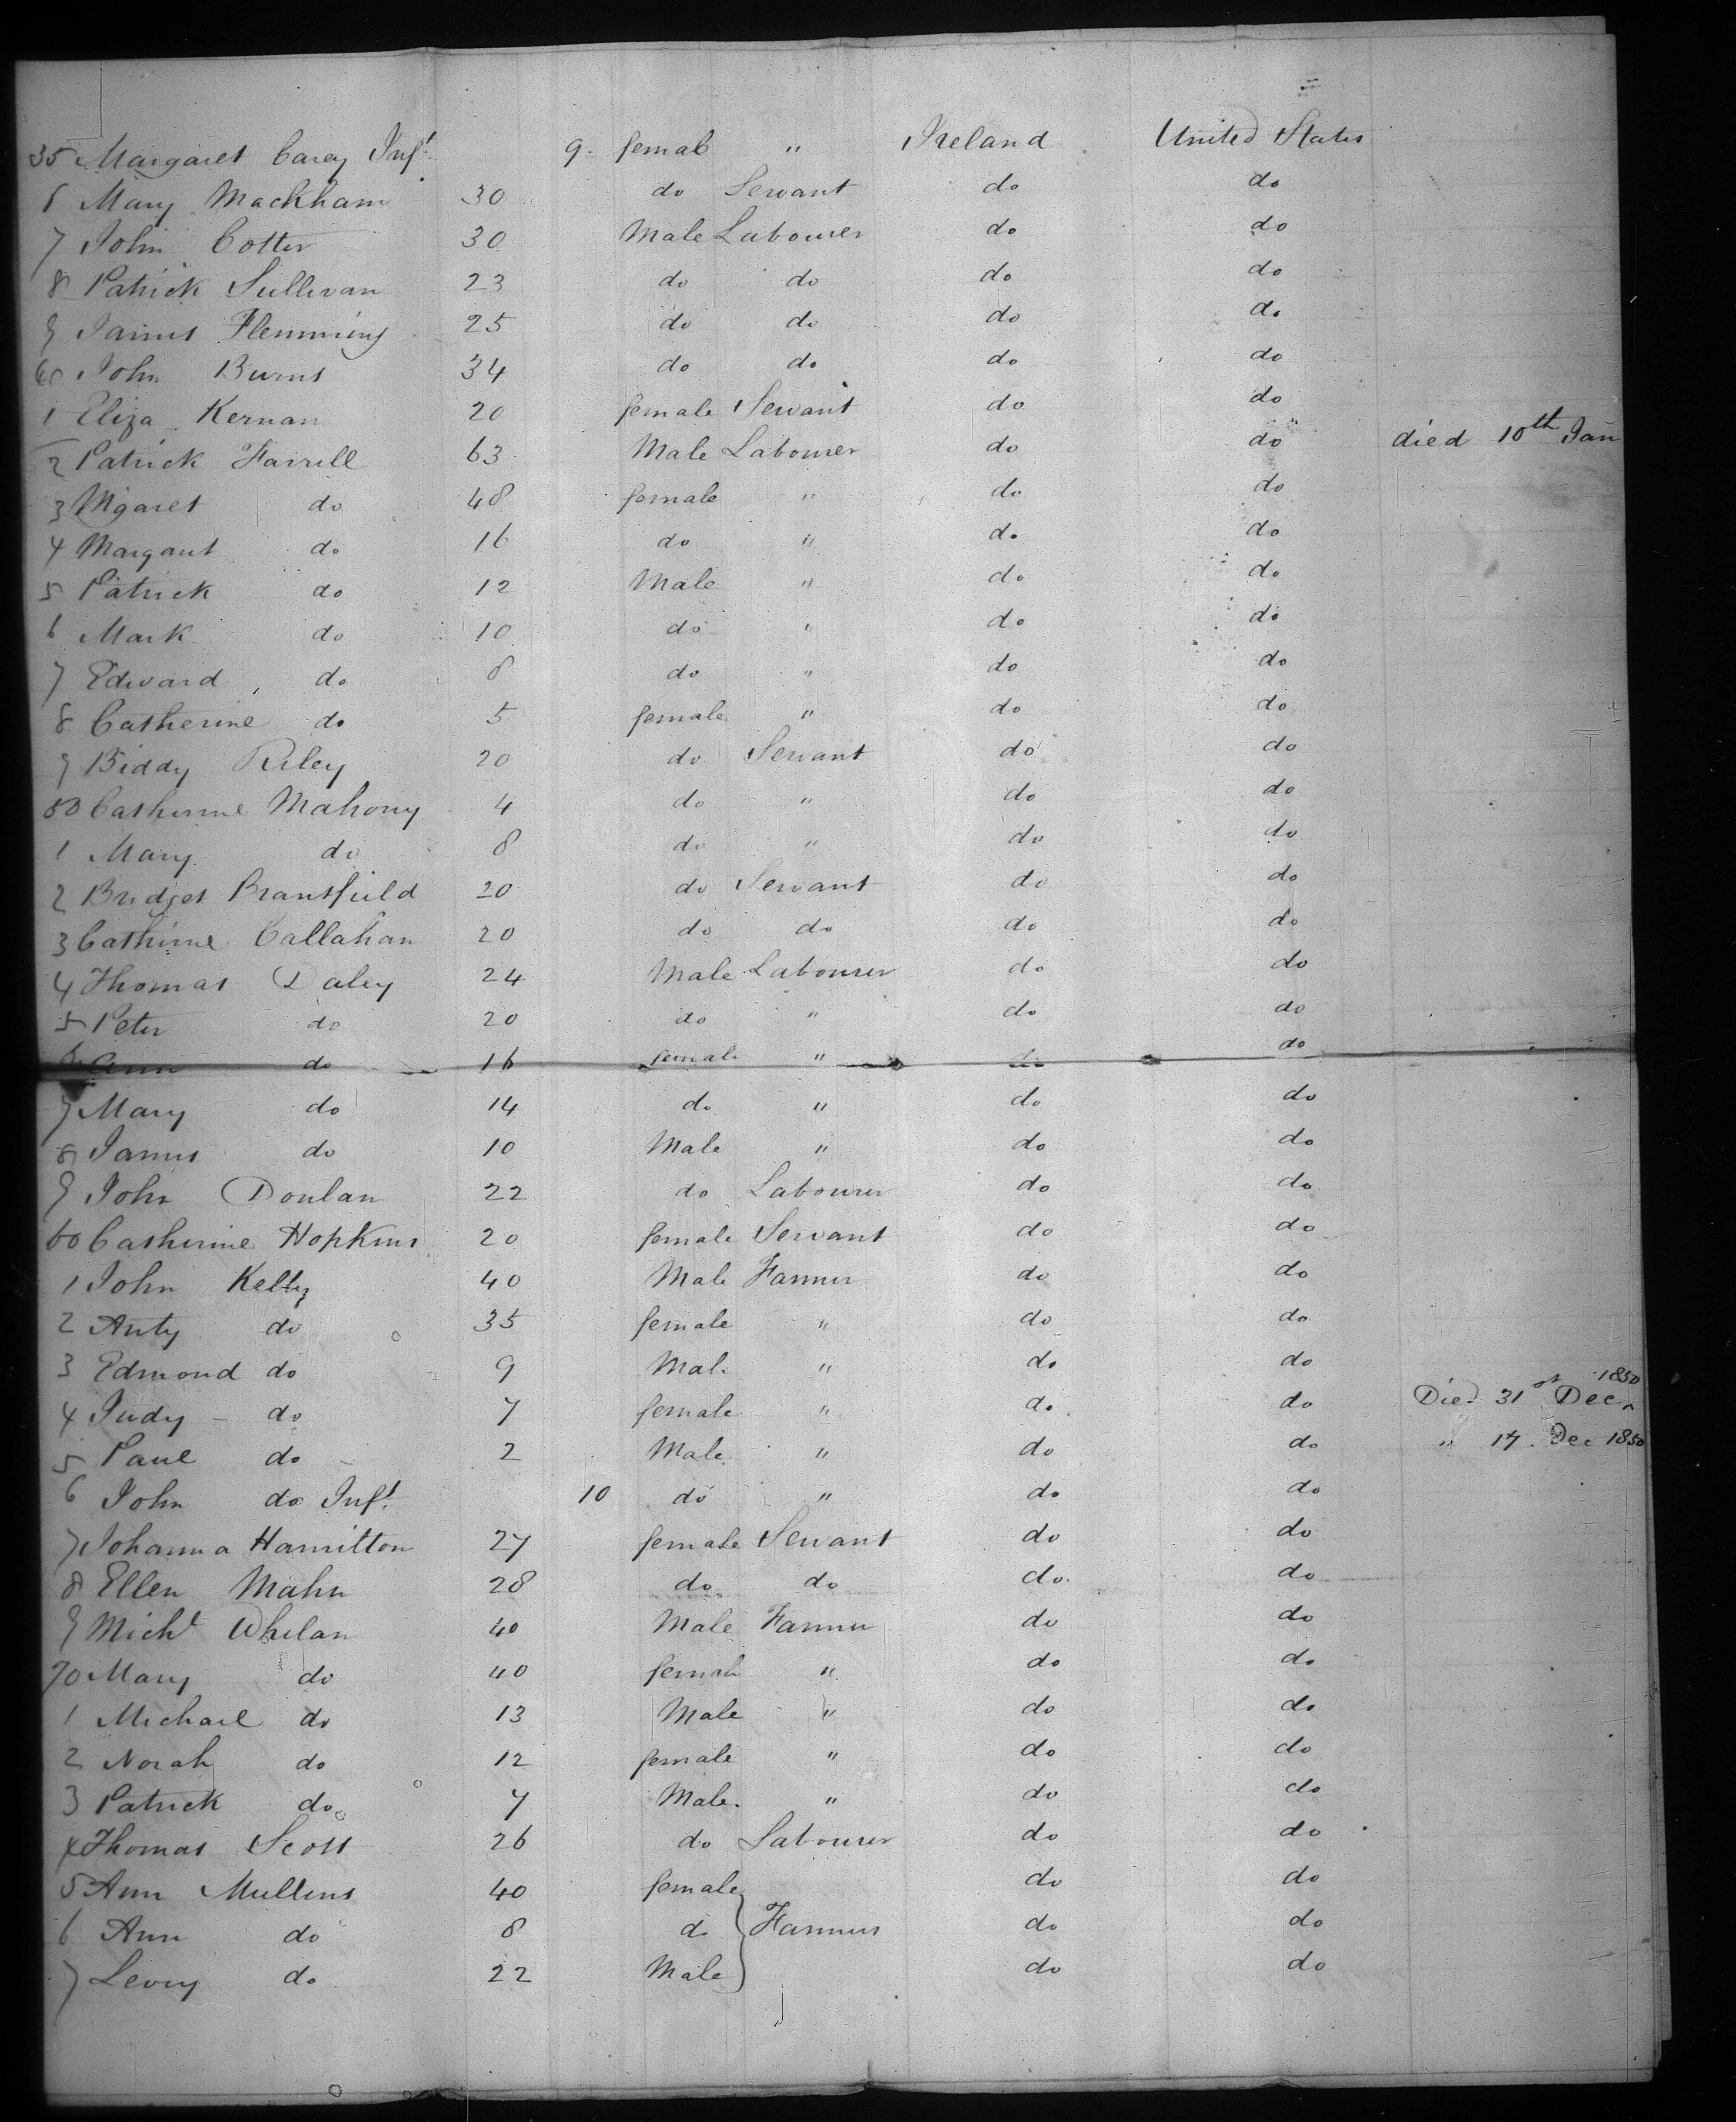 35 Margaret Carey Inft. 9. female " Ireland United States
6 Mary Mackham 30 do Servant do do
7 John Cotter 30 Male Labourer do do
8 Patrick Sullivan 23 do do do do
9 James Flemming 25 do do do do
40 John Burns 34 do do do do
1 Eliza Kernan 20 female Servant do do
2 Patrick Farrell 63 Male Labourer do do died 10th Jan
3 Mgaret do 48 female " do do
4 Margaret do 16 do " do do
5 Patrick do 12 Male " do do
6 Mark do 10 do " do do
7 Edward do 8 do " do do
8 Catherine do 5 female " do do
9 Biddy Riley 20 do Servant do do
50 Catherine Mahony 4 do " do do
1 Mary do 8 do " do do
2 Bridget Bransfield 20 do Servant do do
3 Catherine Callahan 20 do do do do
4 Thomas Daley 24 Male Labourer do do
5 Peter do 20 do " do do
6 Ann do 16 female " do do
7 Mary do 14 do " do do
8 James do 10 Male " do do
9 John Donlan 22 do Labourer do do
60 Catherine Hopkins 20 female Servant do do
1 John Kelly 40 Male Farmer do do
2 Anty do 35 female " do do
3 Edmond do 9 Male " do do
4 Judy do 7 female " do do Died 31st Dec 1850
5 Paul do 2 Male " do do " 17 Dec 1850
6 John do Inft. 10 do " do do
7 Johanna Hamilton 27 female Servant do do
8 Ellen Mahn 28 do do do do
9 Michl Whelan 40 Male Farmer do do
70 Mary do 40 female " do do
1 Michael do 13 Male " do do
2 Norah do 12 female " do do
3 Patrick do 7 Male. " do do
4 Thomas Scott 26 do Labourer do do
5 Ann Mullins 40 female do do
6 Ann do 8 do Farmers do do
7 Levy do 22 Male do do